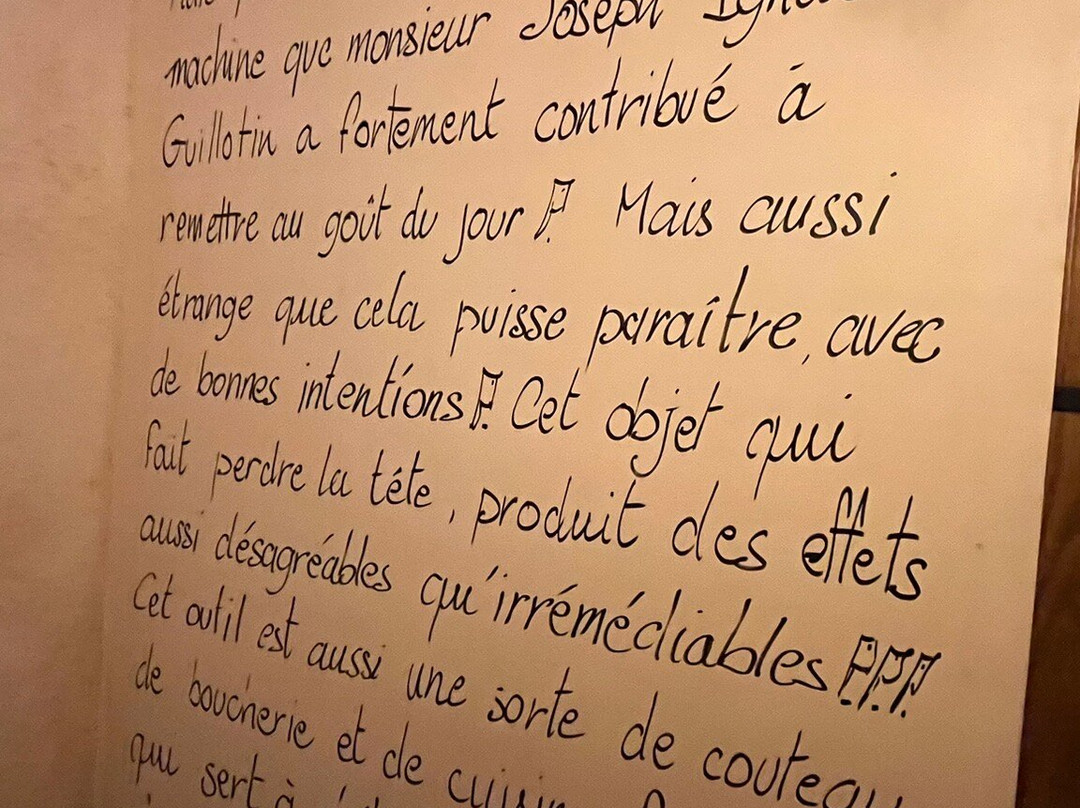 machine que monsieur Joseph
Guillotin a fortement contribué à
remettre au goût du jour ! Mais aussi
étrange que cela puisse paraître, avec
de bonnes intentions ! Cet objet qui
fait perdre la téte, produit des effets
aussi désagréables qu'irrémédiables !!!
Cet outil est aussi une sorte de couteau
de boucherie et de
qui sert à